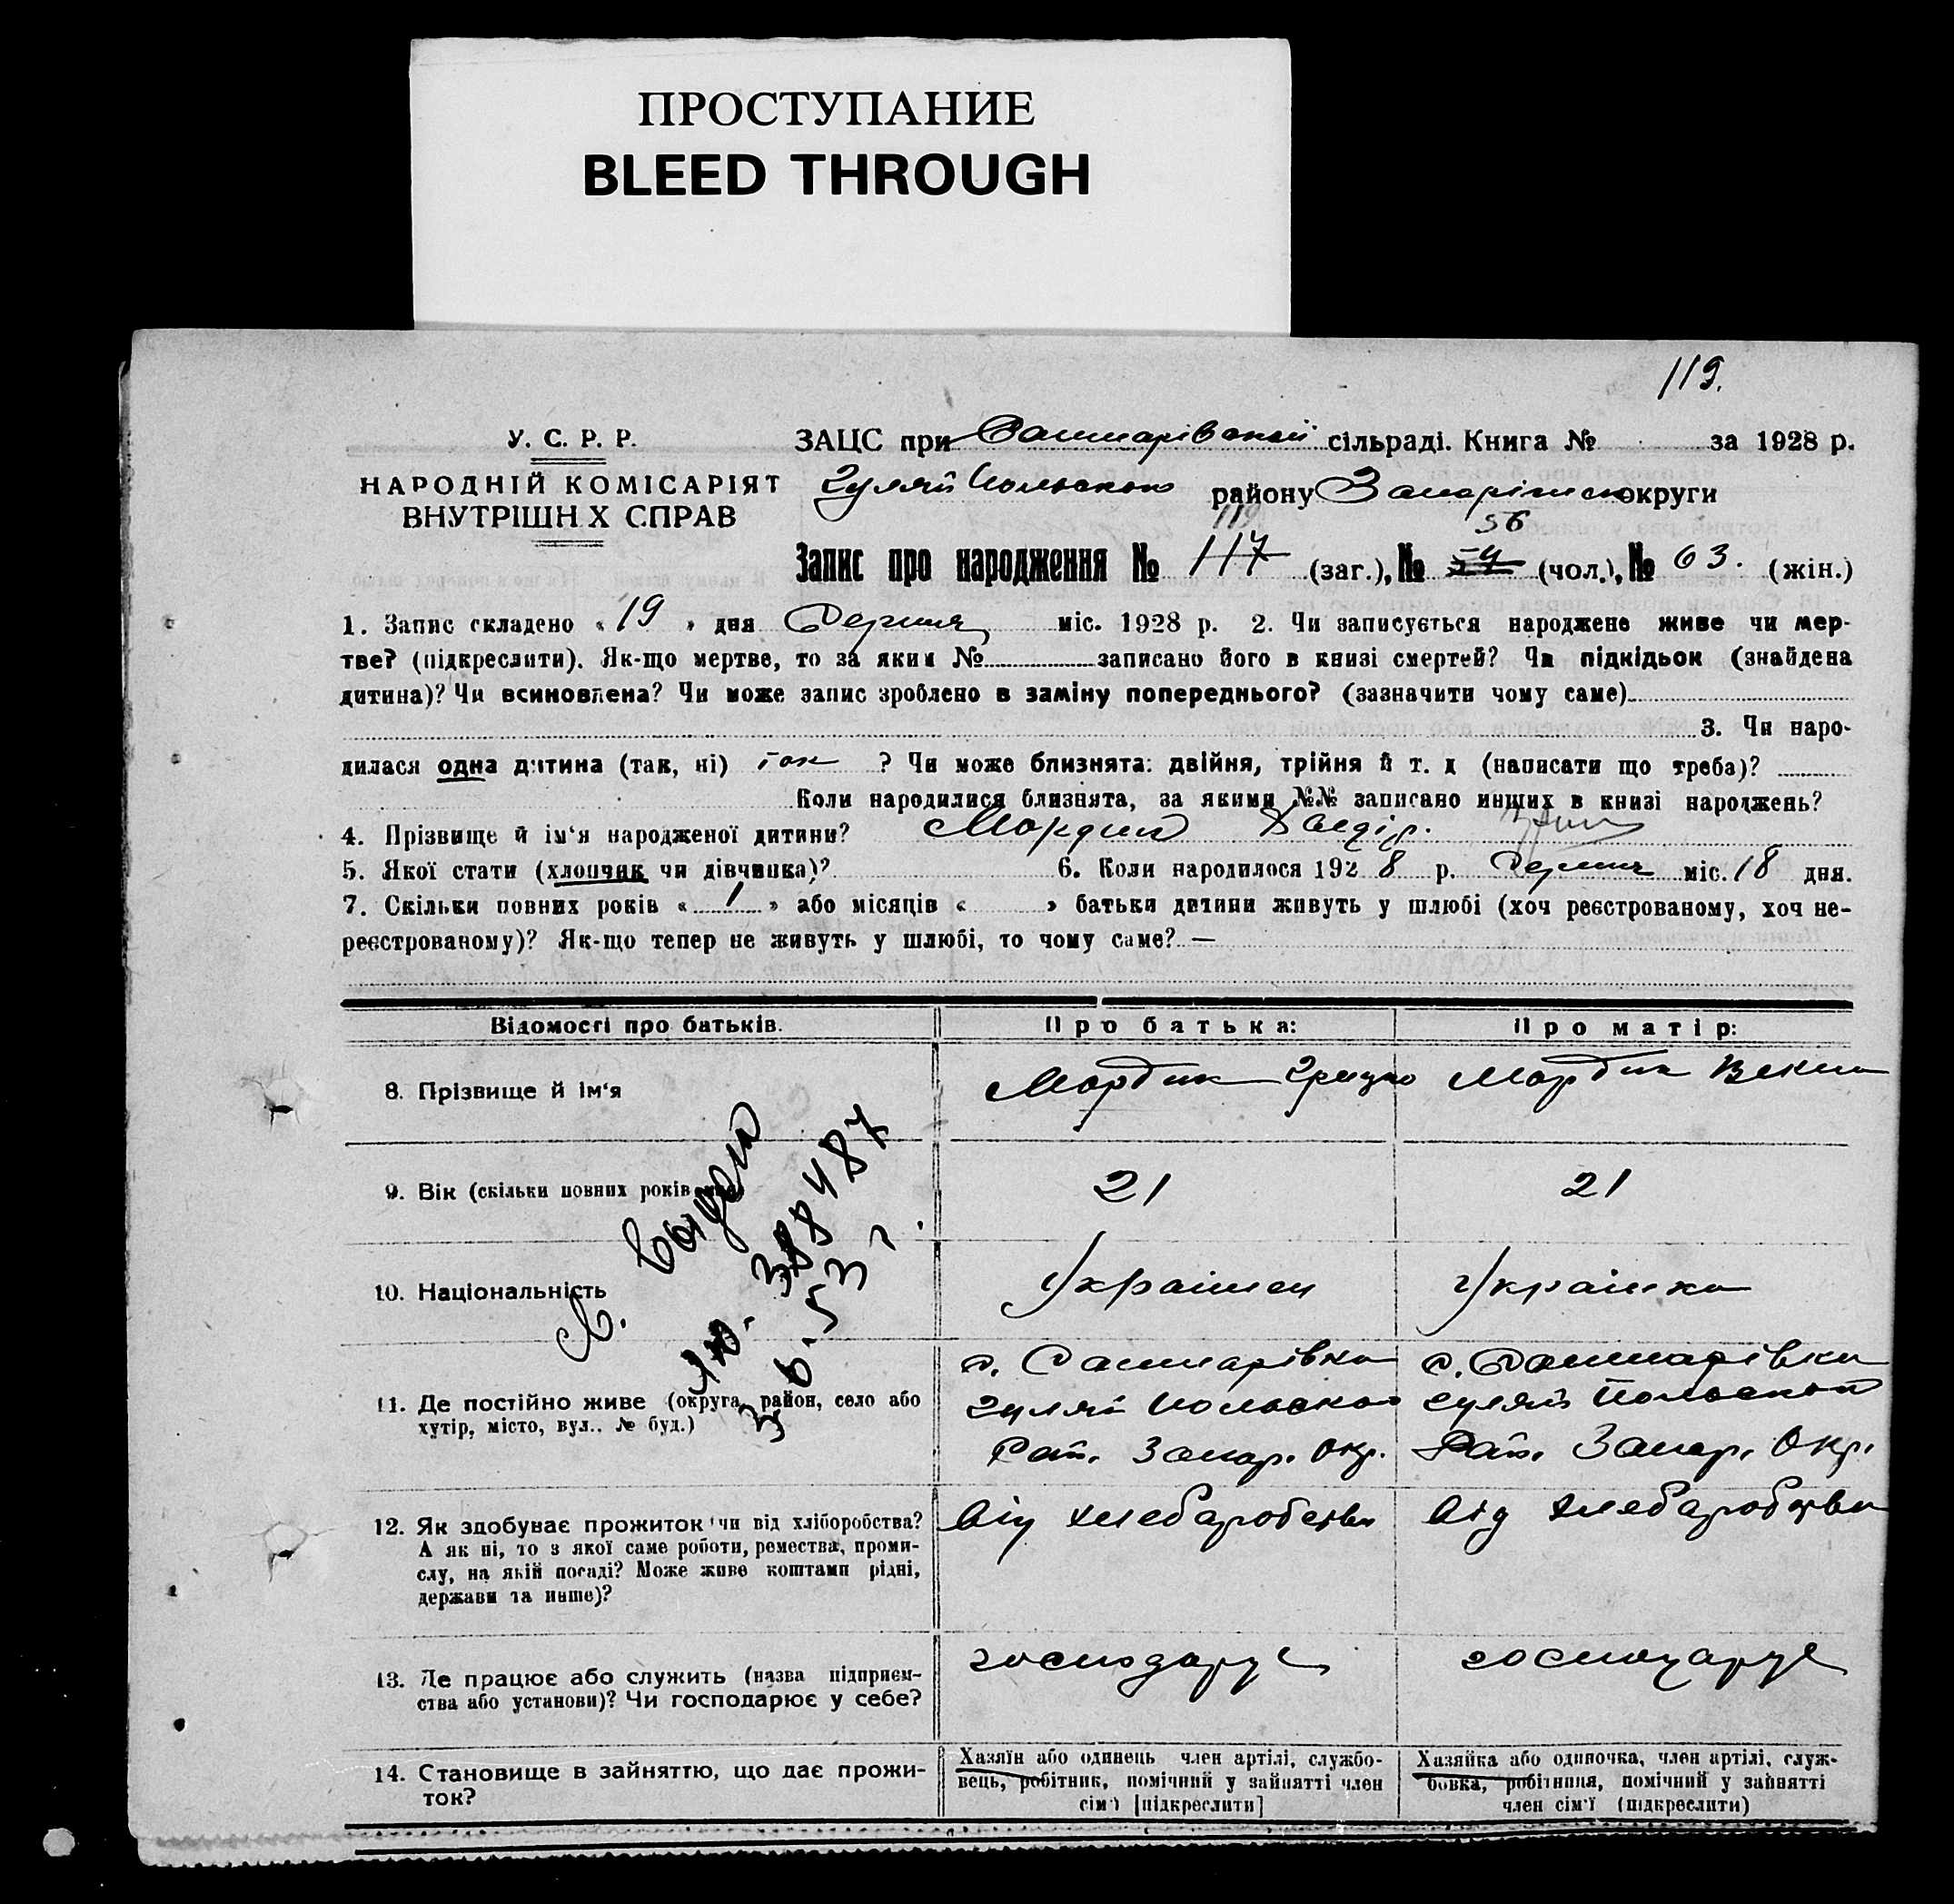 ПРОСТУПАНИЕ
BLEED THROUGH
119.
У. С. Р. Р.
НАРОДНІЙ КОМІСАРІЯТ
ВНУТРІШН Х СПРАВ
ЗАЦС при сільраді. Книга № за 1928 р.
Гуляй Польского району округи
119 56
Запис про народження № 117 (заг.), № 54 (чол.), № 63. (жін.)
1. Запис складено « 19 » дня Серпня міс. 1928 р. 2. Чи записується народжене живе чи мер-
тве? (підкреслити). Як-що мертве, то за яким № записано його в книзі смертей? Чи підкідьок (знайдена
дитина)? Чи всиновлена? Чи може запис зроблено в заміну попереднього? (зазначити чому саме)
3. Чи наро-
дилася одна дитина (так, ні) так ? Чи може близнята: двійня, трійня й т. д (написати що треба)?
Коли народилися близнята, за якими №№ записано инших в книзі народжень?
4. Прізвище й ім‘я народженої дитини? Мордик
5. Якої стати (хлопчик чи дівчинка)? 6. Коли народилося 192 8 р. Серпня міс. 18 дня.
7. Скільки повних років « 1 » або місяців « » батьки дитини живуть у шлюбі (хоч реєстрованому, хоч не-
реєстрованому)? Як-що тепер не живуть у шлюбі, то чому саме? —
Відомості про батьків. Про батька: Про матір:
8. Прізвище й ім‘я Мордик Грицко Мордик
9. Вік (скільки повних років 21 21
10. Національність Українец Українка
11. Де постійно живе (округа, район, село або
хутір, місто, вул.. № буд.)
Гуляй Польского Гуляй Польского
Рай. Запор. Окр. Рай. Запор. Окр.
12. Як здобуває прожиток чи від хліборобства? Від хлебаробства Від хлебаробства
А як ні, то з якої саме роботи, ремества, проми-
слу, на якій посаді? Може живе коштами рідні,
держави та инше)?
13. Де працює або служить (назва підприєм-
ства або установи)? Чи господарює у себе? господарує господарує
14. Становище в зайняттю, що дає прожи-
ток?
Хазяїн або одинець член артілі, службо-
вець, робітник, помічний у зайнятті член
сім'ї [підкреслити]
Хазяйка або одиночка, член артілі, служ-
бовка, робітниця, помічний у зайнятті
член сім'ї (підкреслити)